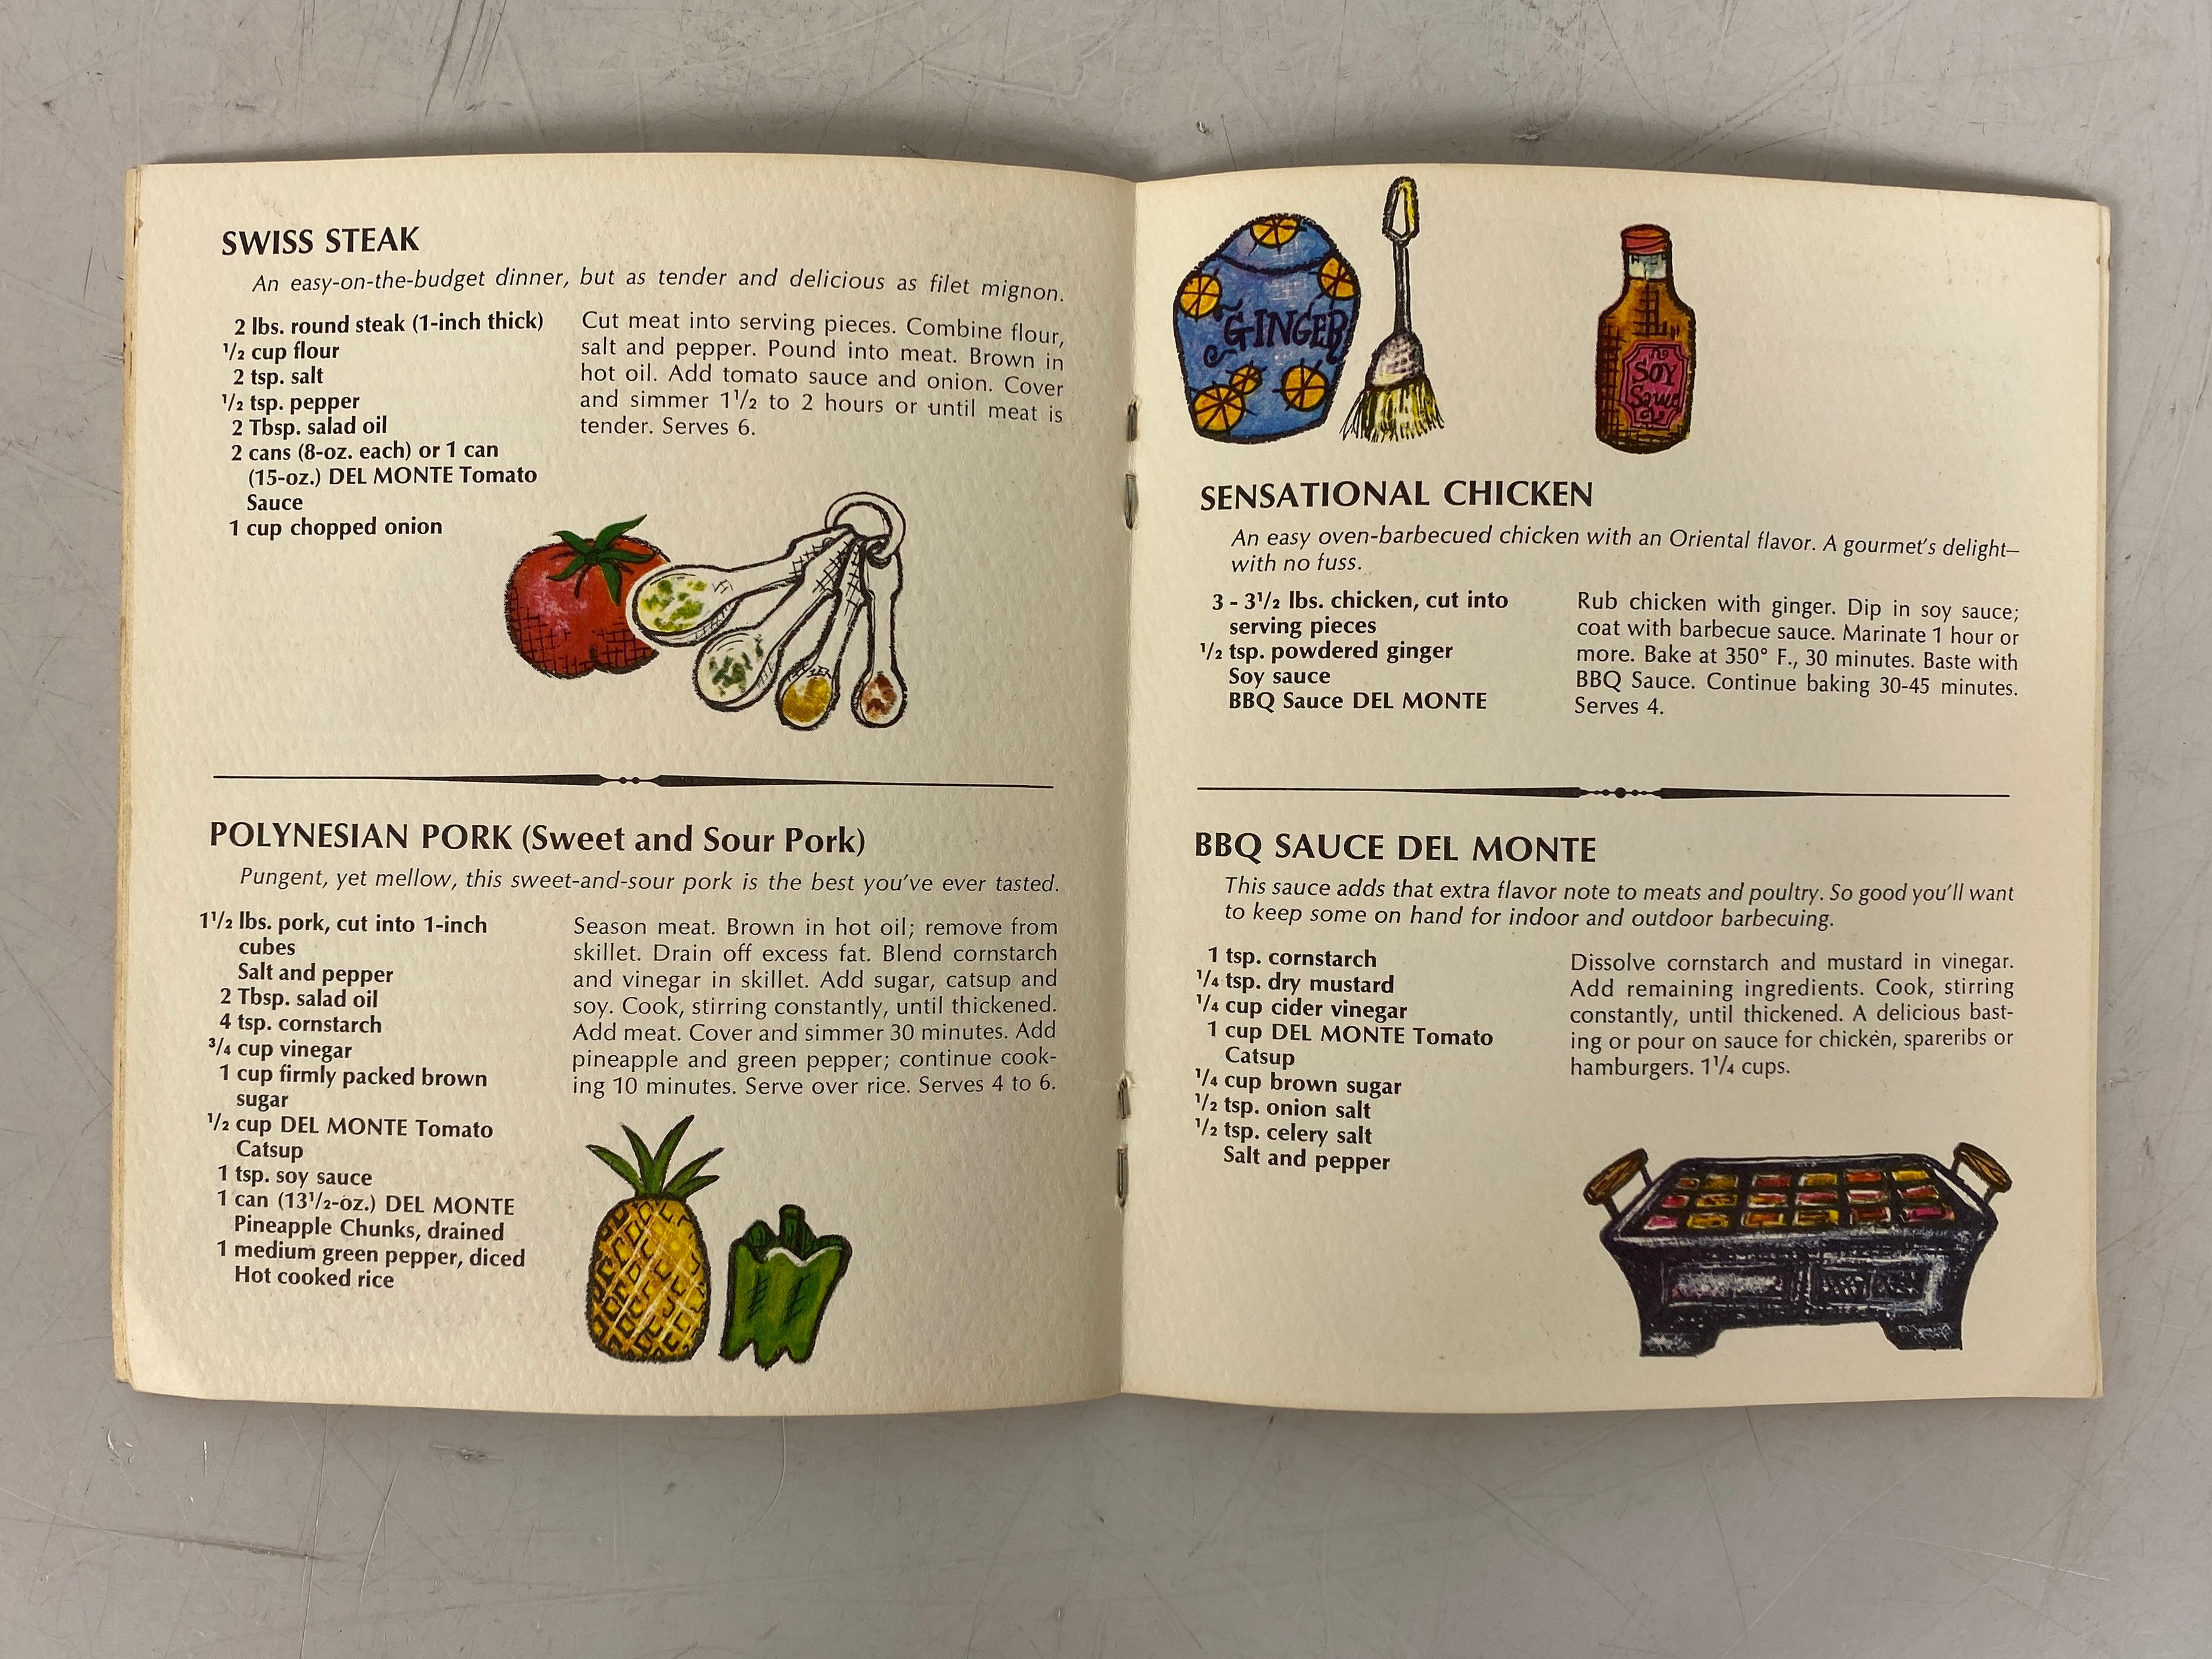 SWISS STEAK
An easy-on-the-budget dinner, but as tender and delicious as filet mignon.
2 lbs. round steak (1-inch thick)
1/2 cup flour
2 tsp. salt
1/2 tsp. pepper
2 Tbsp. salad oil
2 cans (8-oz. each) or 1 can
(15-oz.) DEL MONTE Tomato
Sauce
1 cup chopped onion
Cut meat into serving pieces. Combine flour,
salt and pepper. Pound into meat. Brown in
hot oil. Add tomato sauce and onion. Cover
and simmer 1 1/2 to 2 hours or until meat is
tender. Serves 6.
POLYNESIAN PORK (Sweet and Sour Pork)
Pungent, yet mellow, this sweet-and-sour pork is the best you've ever tasted.
1 1/2 lbs. pork, cut into 1-inch
cubes
Salt and pepper
2 Tbsp. salad oil
4 tsp. cornstarch
3/4 cup vinegar
1 cup firmly packed brown
sugar
1/2 cup DEL MONTE Tomato
Catsup
1 tsp. soy sauce
1 can (13 1/2-oz.) DEL MONTE
Pineapple Chunks, drained
1 medium green pepper, diced
Hot cooked rice
Season meat. Brown in hot oil; remove from
skillet. Drain off excess fat. Blend cornstarch
and vinegar in skillet. Add sugar, catsup and
soy. Cook, stirring constantly, until thickened.
Add meat. Cover and simmer 30 minutes. Add
pineapple and green pepper; continue cook-
ing 10 minutes. Serve over rice. Serves 4 to 6.
GINGER
SOY
Sauce
SENSATIONAL CHICKEN
An easy oven-barbecued chicken with an Oriental flavor. A gourmet's delight—
with no fuss.
3 - 3 1/2 lbs. chicken, cut into
serving pieces
1/2 tsp. powdered ginger
Soy sauce
BBQ Sauce DEL MONTE
Rub chicken with ginger. Dip in soy sauce;
coat with barbecue sauce. Marinate 1 hour or
more. Bake at 350° F., 30 minutes. Baste with
BBQ Sauce. Continue baking 30-45 minutes.
Serves 4.
BBQ SAUCE DEL MONTE
This sauce adds that extra flavor note to meats and poultry. So good you'll want
to keep some on hand for indoor and outdoor barbecuing.
1 tsp. cornstarch
1/4 tsp. dry mustard
1/4 cup cider vinegar
1 cup DEL MONTE Tomato
Catsup
1/4 cup brown sugar
1/2 tsp. onion salt
1/2 tsp. celery salt
Salt and pepper
Dissolve cornstarch and mustard in vinegar.
Add remaining ingredients. Cook, stirring
constantly, until thickened. A delicious bast-
ing or pour on sauce for chicken, spareribs or
hamburgers. 1 1/4 cups.